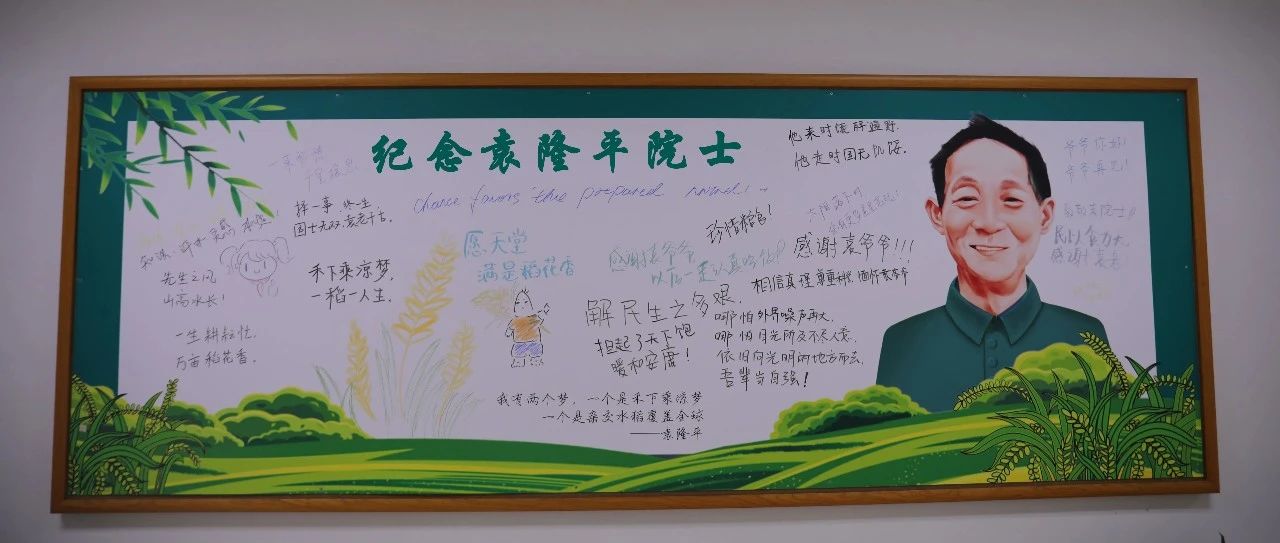 纪念袁隆平院士
chance favors the prepared mind!
择一事 终一生,
国士无双,袁老千古。
先生之风
山高水长!
禾下乘凉梦,
一稻一人生。
一生耕耘忙,
万亩稻花香。
愿天堂
满是稻花香
他来时饿殍遍野.
他走时国无饥馁.
珍惜粮食!
感谢袁爷爷
感谢袁爷爷!!!
解民生之多艰,
担起了天下饱
暖和安康!
哪怕外界噪声再大,
哪怕月光所及不尽人意,
依旧向光明的地方而去,
吾辈当自强!
我有两个梦,一个是禾下乘凉梦
一个是杂交水稻覆盖全球
——袁隆平
爷爷你好!
爷爷再见!
感谢袁老